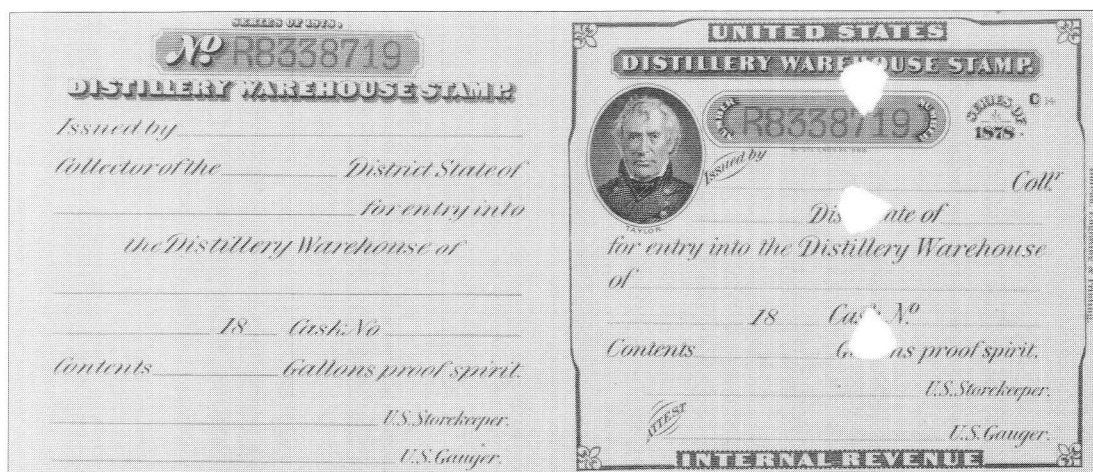 SERIES OF 1878.
No. R8338719
DISTILLERY WAREHOUSE STAMP.
Issued by
Collector of the District State of
for entry into
the Distillery Warehouse of
18 Cask No
Contents Gallons proof spirit.
U.S. Storekeeper.
U.S. Gauger.
UNITED STATES
DISTILLERY WAREHOUSE STAMP.
R8338719
SERIES OF
1878
C 14
Issued by
Coll.r
TAYLOR
of
for entry into the Distillery Warehouse
of
18 Cask No.
Contents proof spirit.
U.S. Storekeeper.
ATTEST
U.S. Gauger.
INTERNAL REVENUE